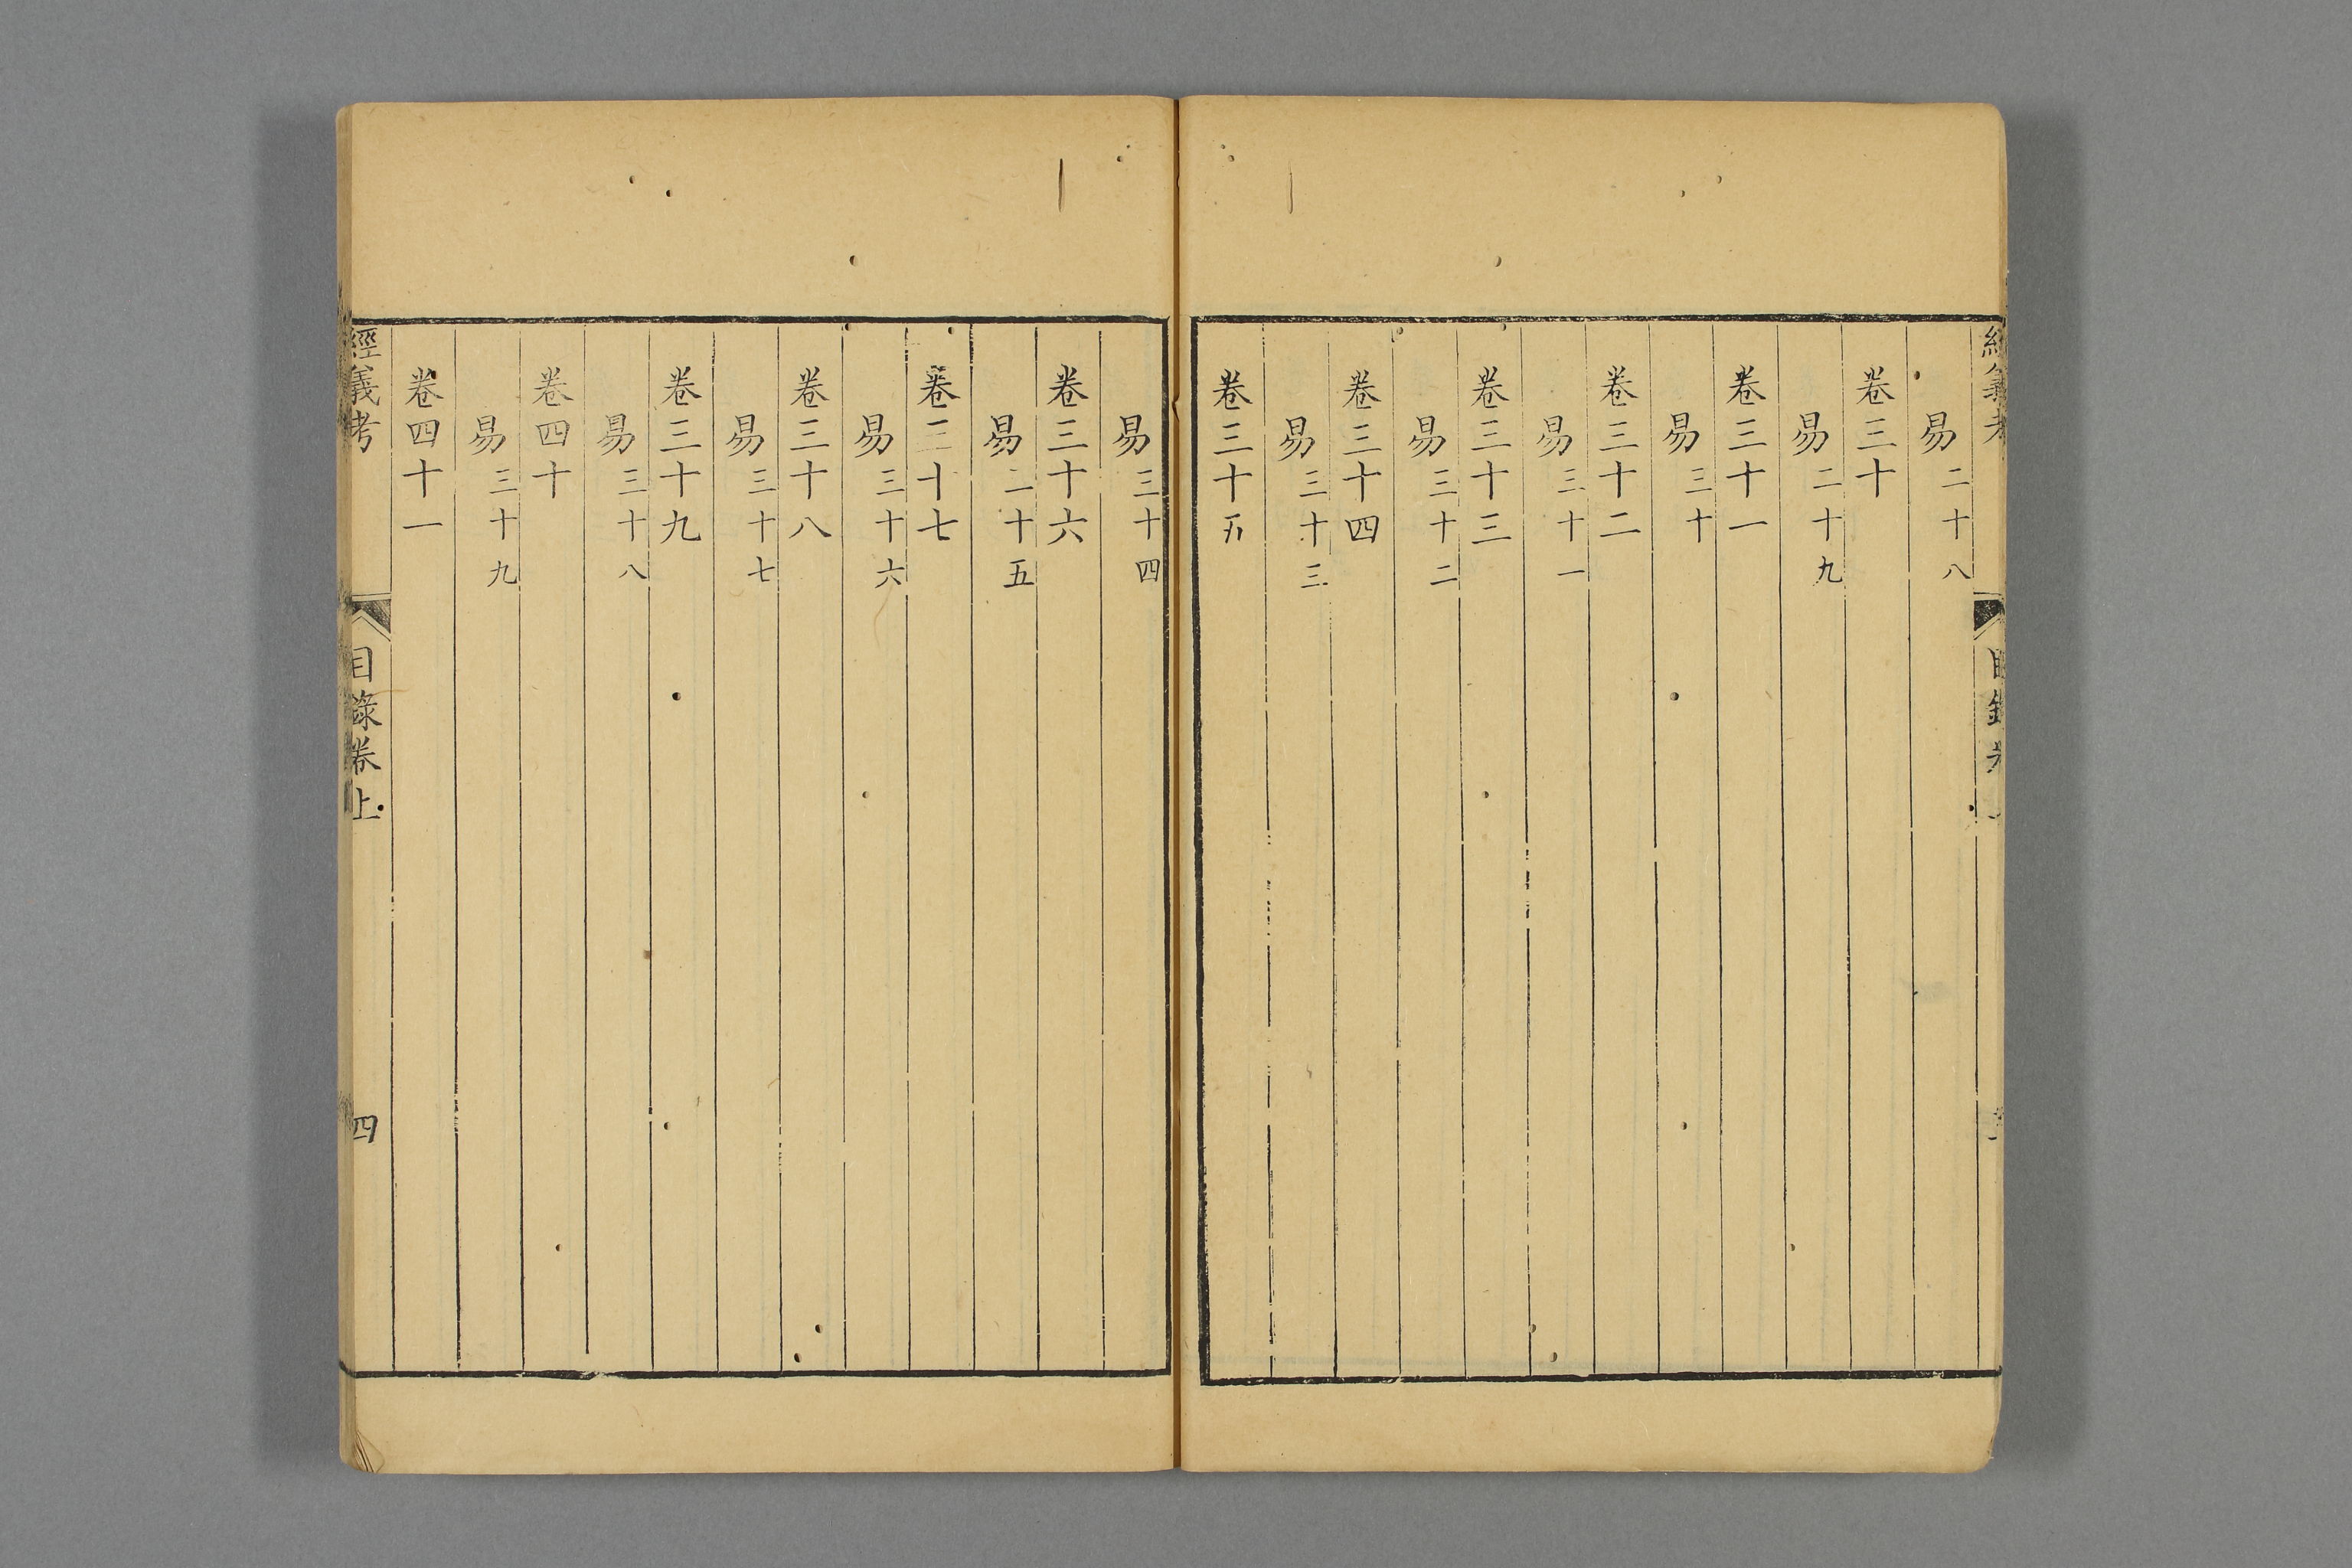 易二十八
卷三十
易二十九
卷三十一
易三十
卷三十二
易三十一
卷三十三
易三十二
卷三十四
易三十三
卷三十五
易三十四
卷三十六
易二十五
卷三十七
易三十六
卷三十八
易三十七
卷三十九
易三十八
卷四十
易三十九
卷四十一
經義考 目錄卷上 四